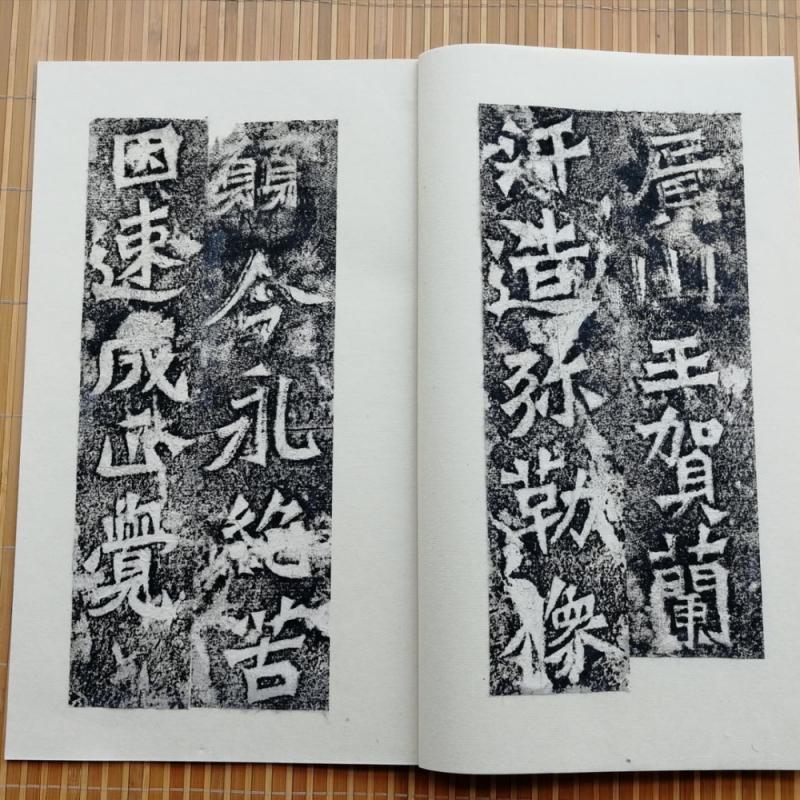 廣川王賀蘭
汗造弥勒像
願令永絕苦
因速成正覺